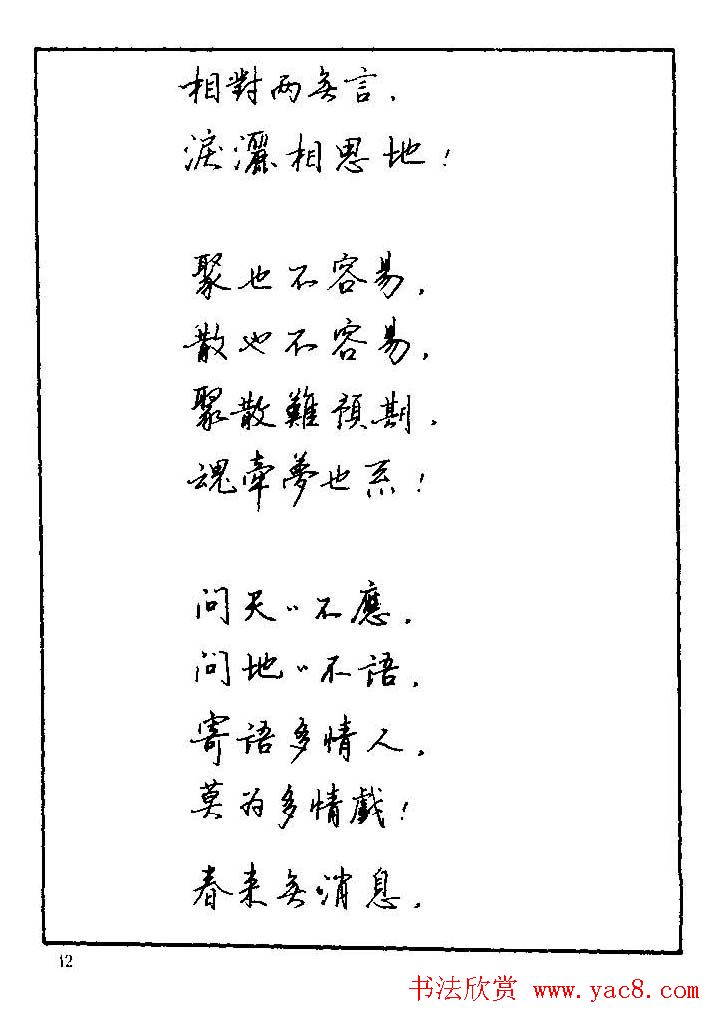 相對两無言，
淚灑相思地！
聚也不容易，
散也不容易，
聚散難預期，
魂牽夢也系！
问天〃不應，
问地〃不語，
寄語多情人，
莫为多情戲！
春来無消息，
12
书法欣赏 www.yac8.com